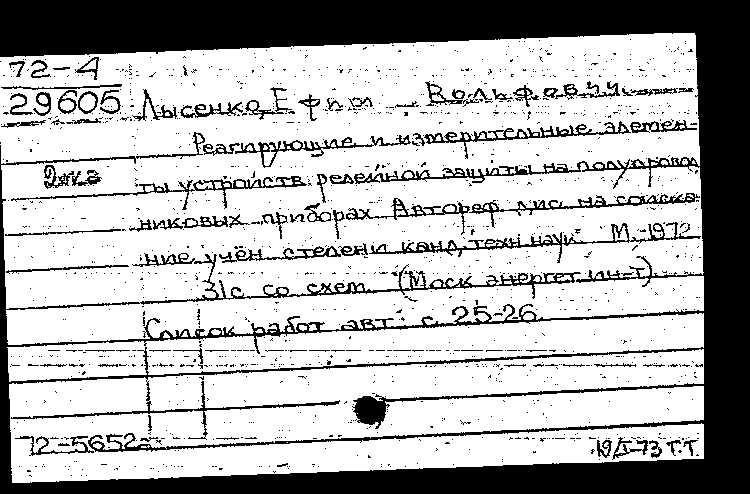 72-4
29605
Лысенко, Ефим Вольфович.
Реагирующие и измерительные элемен-
ты устройств релейной защиты на полупровод
никовых приборах. Автореф. дис. на соиска-
ние учён. степени канд. техн. наук. М., 1972
31с со схем. (Моск энергет ин-т)
Список работ авт: с. 25-26.
72-5652а
19/I-73 Т.Т.